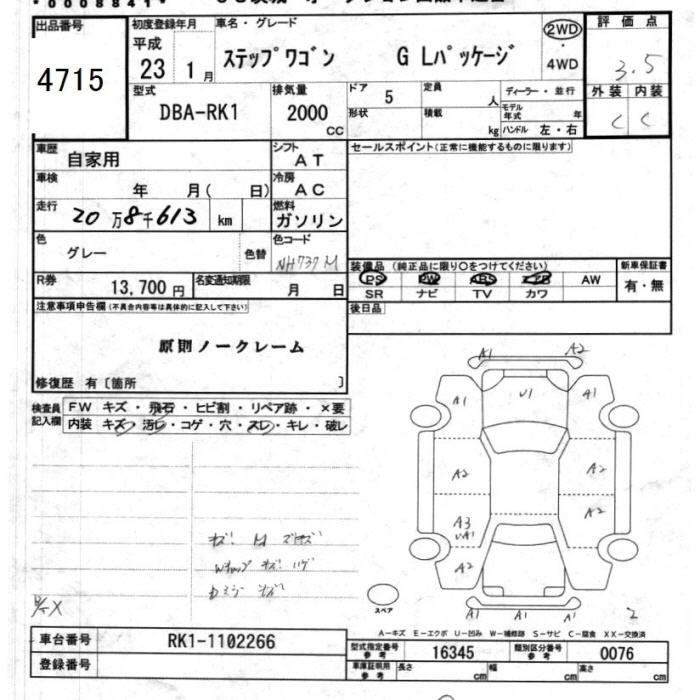 出品番号
4715
初度登録年月
平成
23 1月
車名・グレード
ステップワゴン G Lパッケージ
2WD
・
4WD
評価点
3.5
外装 内装
C C
型式
DBA-RK1
排気量
2000
CC
ドア
5
定員
人
形状
積載
kg
ディーラー・並行
モデル年式 年
ハンドル 左・右
車歴
自家用
シフト
AT
車検
年 月( 日)
冷房
AC
走行
20万8千613 km
燃料
ガソリン
色
グレー
色替
色コード
NH737M
R券
13,700円
名変通知期限
月 日
セールスポイント(正常に機能するものに限ります)
装備品 (純正品に限り○をつけてください)
PS PW ABS エアB AW
SR ナビ TV カワ
新車保証書
有・無
後日品
注意事項申告欄(不具合内容等は具体的に記入して下さい)
原則ノークレーム
修復歴 有〔箇所 〕
検査員記入欄
FW キズ・飛石・ヒビ割・リペア跡・×要
内装 キズ・汚レ・コゲ・穴・スレ・キレ・破レ
A1 A2
A1 U1 A1
A2 A2
A3 A2
UA1
A2
A1 A1 A1
スペア
A-キズ E-エクボ U-凹み W-補修跡 S-サビ C-腐食 XX-交換済
車台番号
RK1-1102266
登録番号
型式指定番号
参考
16345
類別区分番号
参考
0076
車庫証明用
参考
長さ cm 幅 cm 高さ cm